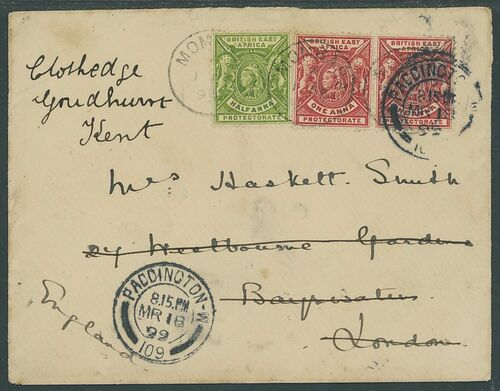 BRITISH EAST AFRICA
HALF ANNA
PROTECTORATE
BRITISH EAST AFRICA
ONE ANNA
PROTECTORATE
BRITISH EAST AFRICA
PROTECTORATE
MOM
PADDINGTON
Goudhurst
Kent
Mrs Haskett Smith
Westbourne Gardens
Bayswater
London
England
PADDINGTON-W
8.15.PM
MR 18
99
109